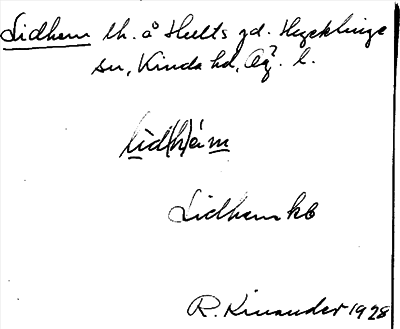 Lidhem lh. å Hults gd. Hycklinge
sn, Kinda hd, Ög. l.
lìd(h)ém
Lidhem kb
R. Kinander 1928